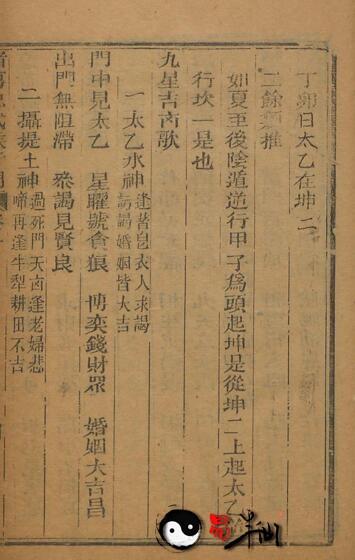 丁卯日太乙在坤二
二餘類推
如夏至後陰遁逆行甲子爲頭起坤是從坤二上起太乙
行坎一是也
九星吉凶歌
一太乙水神
逢著皂衣人求謁
謁婚姻皆大吉
門中見太乙 星曜號貪狼 博奕錢財眾 婚姻大吉昌
出門無阻滯 叅謁見賢良
二攝提土神
過死門天凶逢老婦悲
啼再逢牛犁耕田不吉